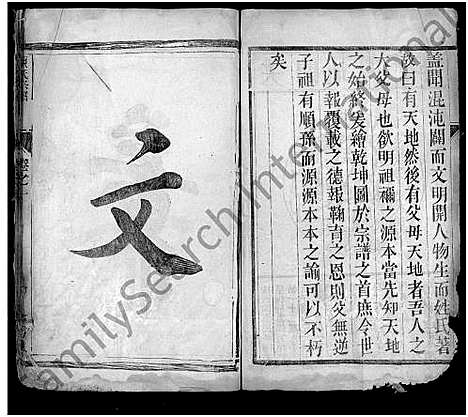 蓋聞混沌闢而文明開人物生而姓氏著
故曰有天地然後有父母天地者吾人之
大父母也欲明祖禰之源本當先知天地
之始終爰繪乾坤圖於宗譜之首庶令世
人以報覆載之德報鞠育之恩則父無逆
子祖有順孫而源源本本之諭可以不朽
矣
文
FamilySearch International